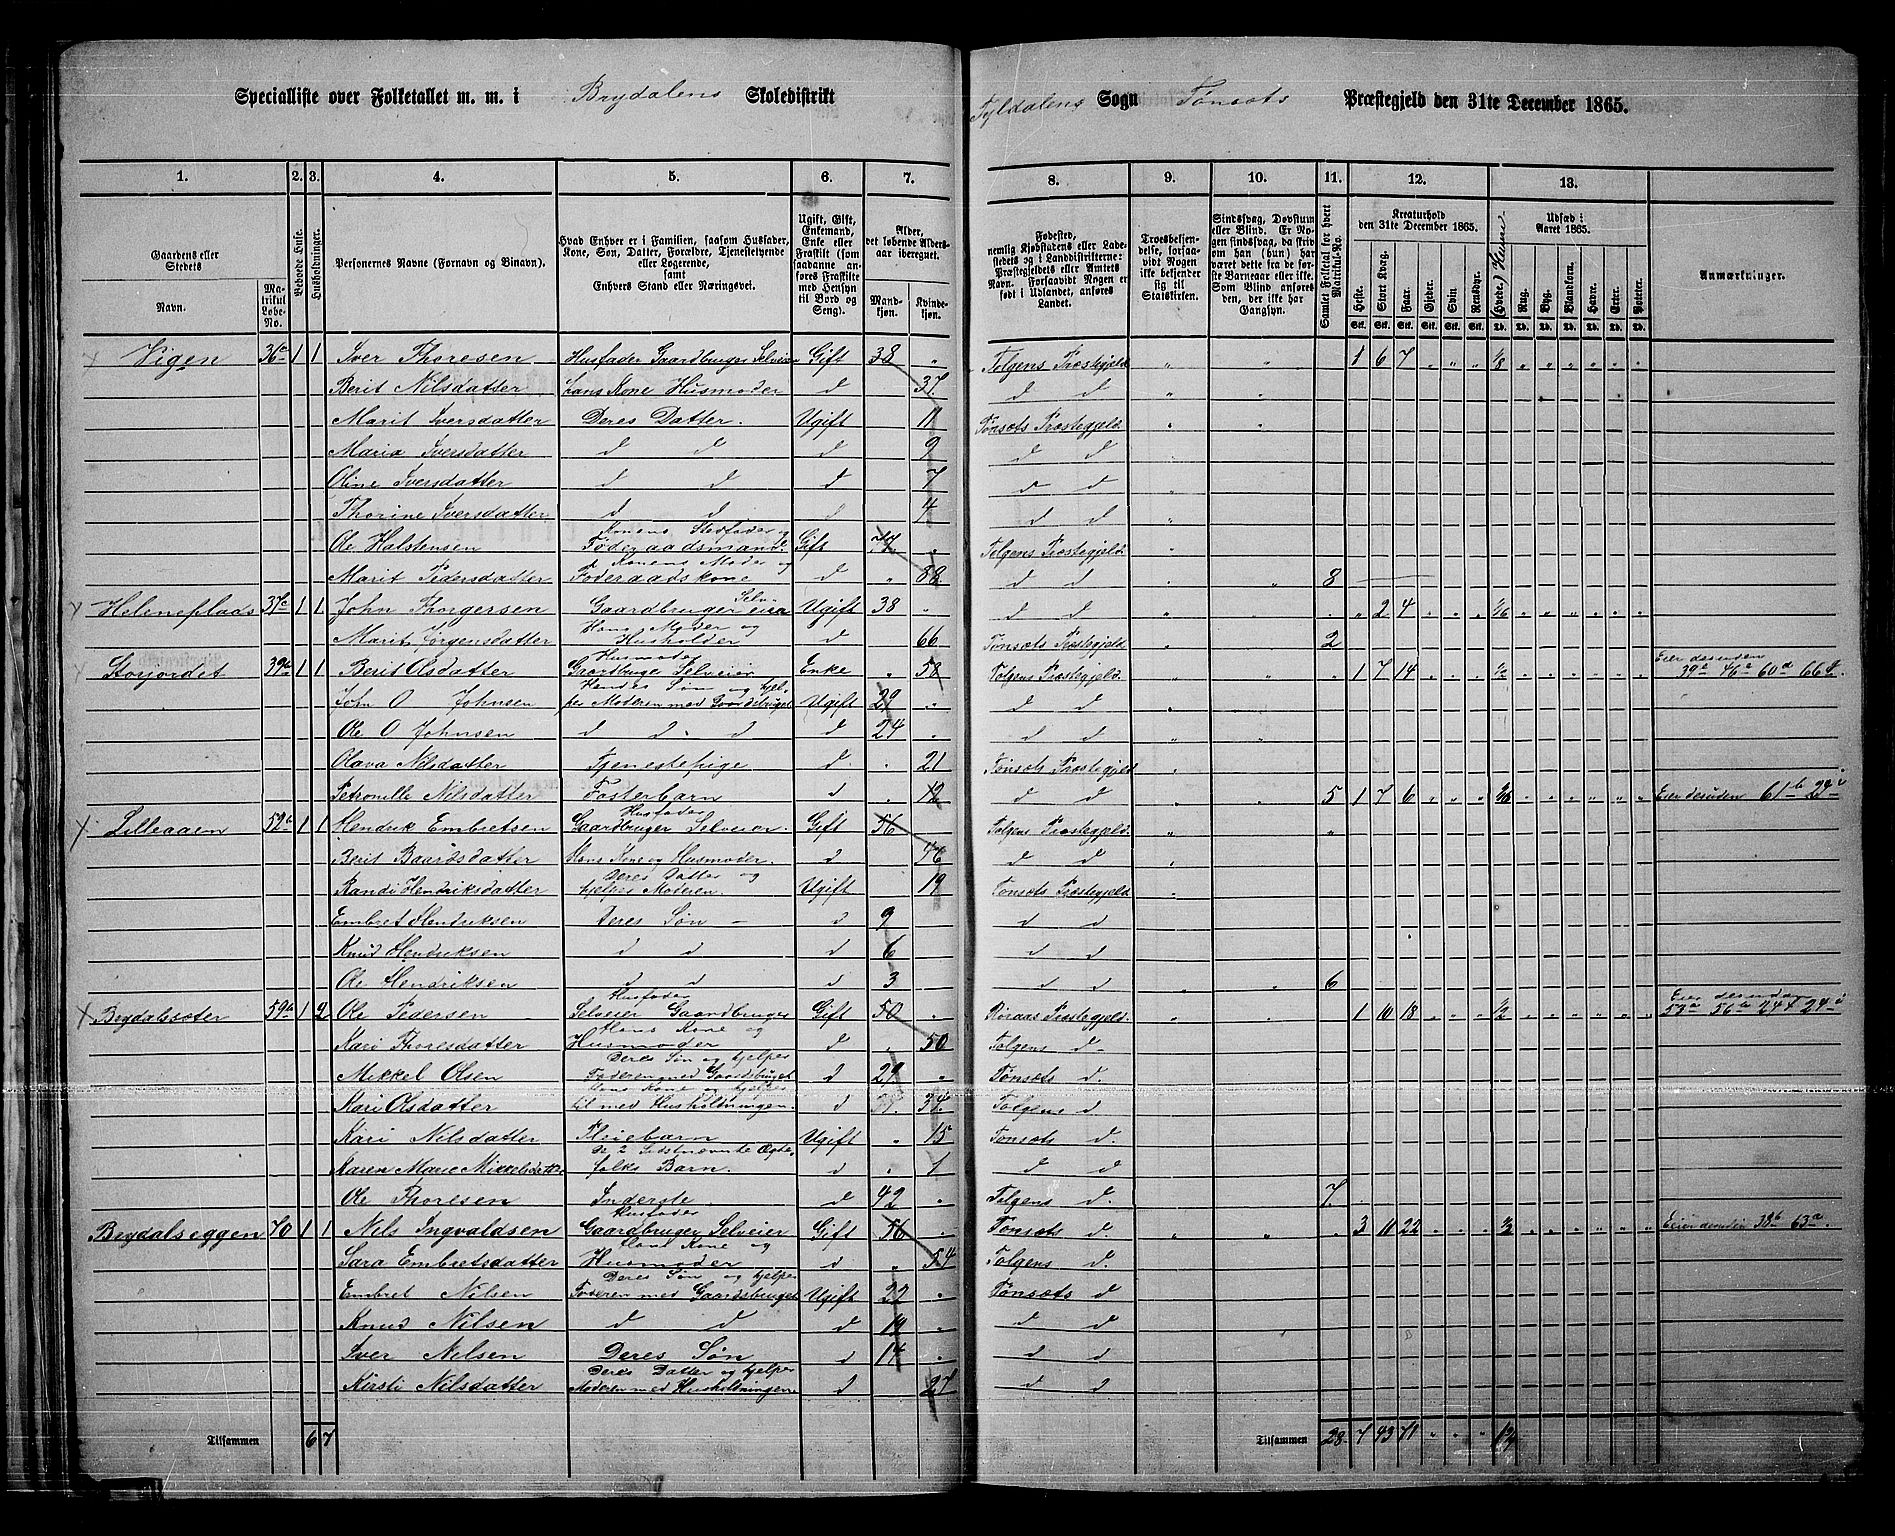 Specialliste over Folketallet m. m. i Brydalens Skoledistrikt Tyldalens Sogn Tønsæts Præstegjeld den 31te December 1865.
1. 2. 3. 4. 5. 6. 7. 8. 9. 10. 11. 12. 13.
Gaardens eller Stedets
Navn.
Matrikul Løbe-No.
Beboede Huse.
Husholdninger.
Personernes Navne (Fornavn og Binavn).
Hvad Enhver er i Familien, saasom Husfader, Kone, Søn, Datter, Forældre, Tjenestetyende eller Logerende, samt Enhvers Stand eller Næringsvei.
Ugift, Gift, Enkemand, Enke eller Fraskilt (som saadanne anføres Fraskilte med Hensyn til Bord og Seng).
Alder, det løbende Alders-aar iberegnet.
Mand-kjøn. Kvinde-kjøn.
Fødested, nemlig Kjøbstadens eller Ladestedets og i Landdistrikterne: Præstegjeldets eller Amtets Navn. Forsaavidt Nogen er født i Udlandet, anføres Landet.
Troesbekjendelse, forsaavidt Nogen ikke bekjender sig til Statskirken.
Sindssvag, Døvstum eller Blind. Er Nogen sindssvag, da skrives om han (hun) har været dette fra de første Barneaar eller ikke. Som Blind anføres den, der ikke har Gangsyn.
Samlet Folketal for hvert Matrikul-No.
Kreaturhold den 31te December 1865.
Heste. Stort Kvæg. Faar. Gjeder. Svin. Rensdyr.
Udsæd i Aaret 1865.
Hvede. Rug. Byg. Blandkorn. Havre. Erter. Poteter.
Anmærkninger.
Vigen 36 1 1 Iver Thoresen Husfader Gaardbruger Selveier Gift 38 „ Tolgens Præstegjeld „ „ 1 6 7 „ „ „ 1/8 „ „ „ „ „
Berit Nilsdatter Hans Kone Husmoder d 37 d d „ „
Marit Iversdatter Deres Datter. Ugift 11 Tønsæts Præstegjeld „ „
Maria Iversdatter d d d 9 d d „
Oline Iversdatter d d d 7 d d „
Thorine Iversdatter d d d 4 d d „
Ole Halstensen Konens Stedfader og Føderaadsmand Gift 74 „ Tolgens Præstegjeld „
Marit Pedersdatter Konens Moder og Føderaadskone d „ 88 d d „ „ 8
Heleneplads 37c 1 1 John Thorgersen Gaardbruger Selveier Ugift 38 „ d d „ „ 2 4 „ „ „ 1/16 „ „ „ „ „ „
Marit Jørgensdatter Hans Moder og Husholder d 66 Tønsæts Præstegjeld „ 2
Storjordet 39 1 1 Berit Olsdatter Husmoder Gaardbruge Selveier Enke „ 58 Tolgens Præstegjeld „ „ 1 7 14 „ „ „ 1/2 „ „ „ „ „ „ Eier desuden 39a 46a 60d 66
John O Johnsen Hendes Søn og hjelper Moderen med Gaardsbruget Ugift 29 „ d d „ „
Ole O Johnsen d d d d 24 „ d d „ „
Olava Nilsdatter Tjenestepige d „ 21 Tønsæts Præstegjeld „
Petronille Nilsdatter Fosterbarn d „ 12 d d „ „ 5 1 7 6 „ „ „ „ „ „ „ „ „ Eier desuden 61b 24i
Lilleaaen 52 1 1 Hendrik Embretsen Husfader Gaardbruger Selveier. Gift 56 Tolgens Præstegjeld „ „
Berit Baardsdatter Hans Kone og Husmoder. d 46 d d „
Randi Hendriksdatter Deres Datter og hjelper Moderen. Ugift 19 Tønsæts Præstegjeld „
Embret Hendriksen Deres Søn d 9 d d
Knud Hendriksen d d d 6 d d
Ole Hendriksen d d d 3 d d „ „ 6
Brydalssæter 59b 1 2 Ole Pedersen Husfader Selveier Gaardbruger Gift 50 „ Røraas Præstegjeld 1 10 18 „ „ „ 1/2 „ „ „ „ „ „ Eier desuden 59a 56b 24f 24i
Kari Thoresdatter Hans Kone og Husmoder d „ 50 Tolgens d
Mikkel Olsen Deres Søn og hjelper Faderen med Gaardbruget d 29 „ Tønsæts d.
Kari Olsdatter Hans Kone og hjelper til med Husholdningen. d 34 Tolgens d
Kari Nilsdatter Pleiebarn Ugift „ 15 Tønsæts d.
Karen Marie Mikkelsdatter De 2 Sidstnævnte Ægtefolks Barn. d „ 1 d d
Ole Thoresen Inderste d 42 „ Tolgens d. 7.
Brydalseggen 70 1 1 Nils Ingvaldsen Husfader Gaardbruger Selveier Gift 56 „ Tønsæts d. „ „ „ 3 10 22 „ „ „ 1/2 „ „ „ „ „ „ Eier desuden 38b 63a.
Sara Embretsdatter Hans Kone og Husmoder d „ 54 Tolgens d.
Embret Nilsen Deres Søn og hjelper Faderen med Gaardsbruget Ugift 22 „ Tønsæts d
Knud Nilsen d d d 19 „ d d
Iver Nilsen Deres Søn d 14 „ d d
Kirsti Nilsdatter Deres Datter og hjelper Moderen med Husholdningen d 27 d d
Tilsammen 6 7 Tilsammen 28 7 43 71 „ „ „